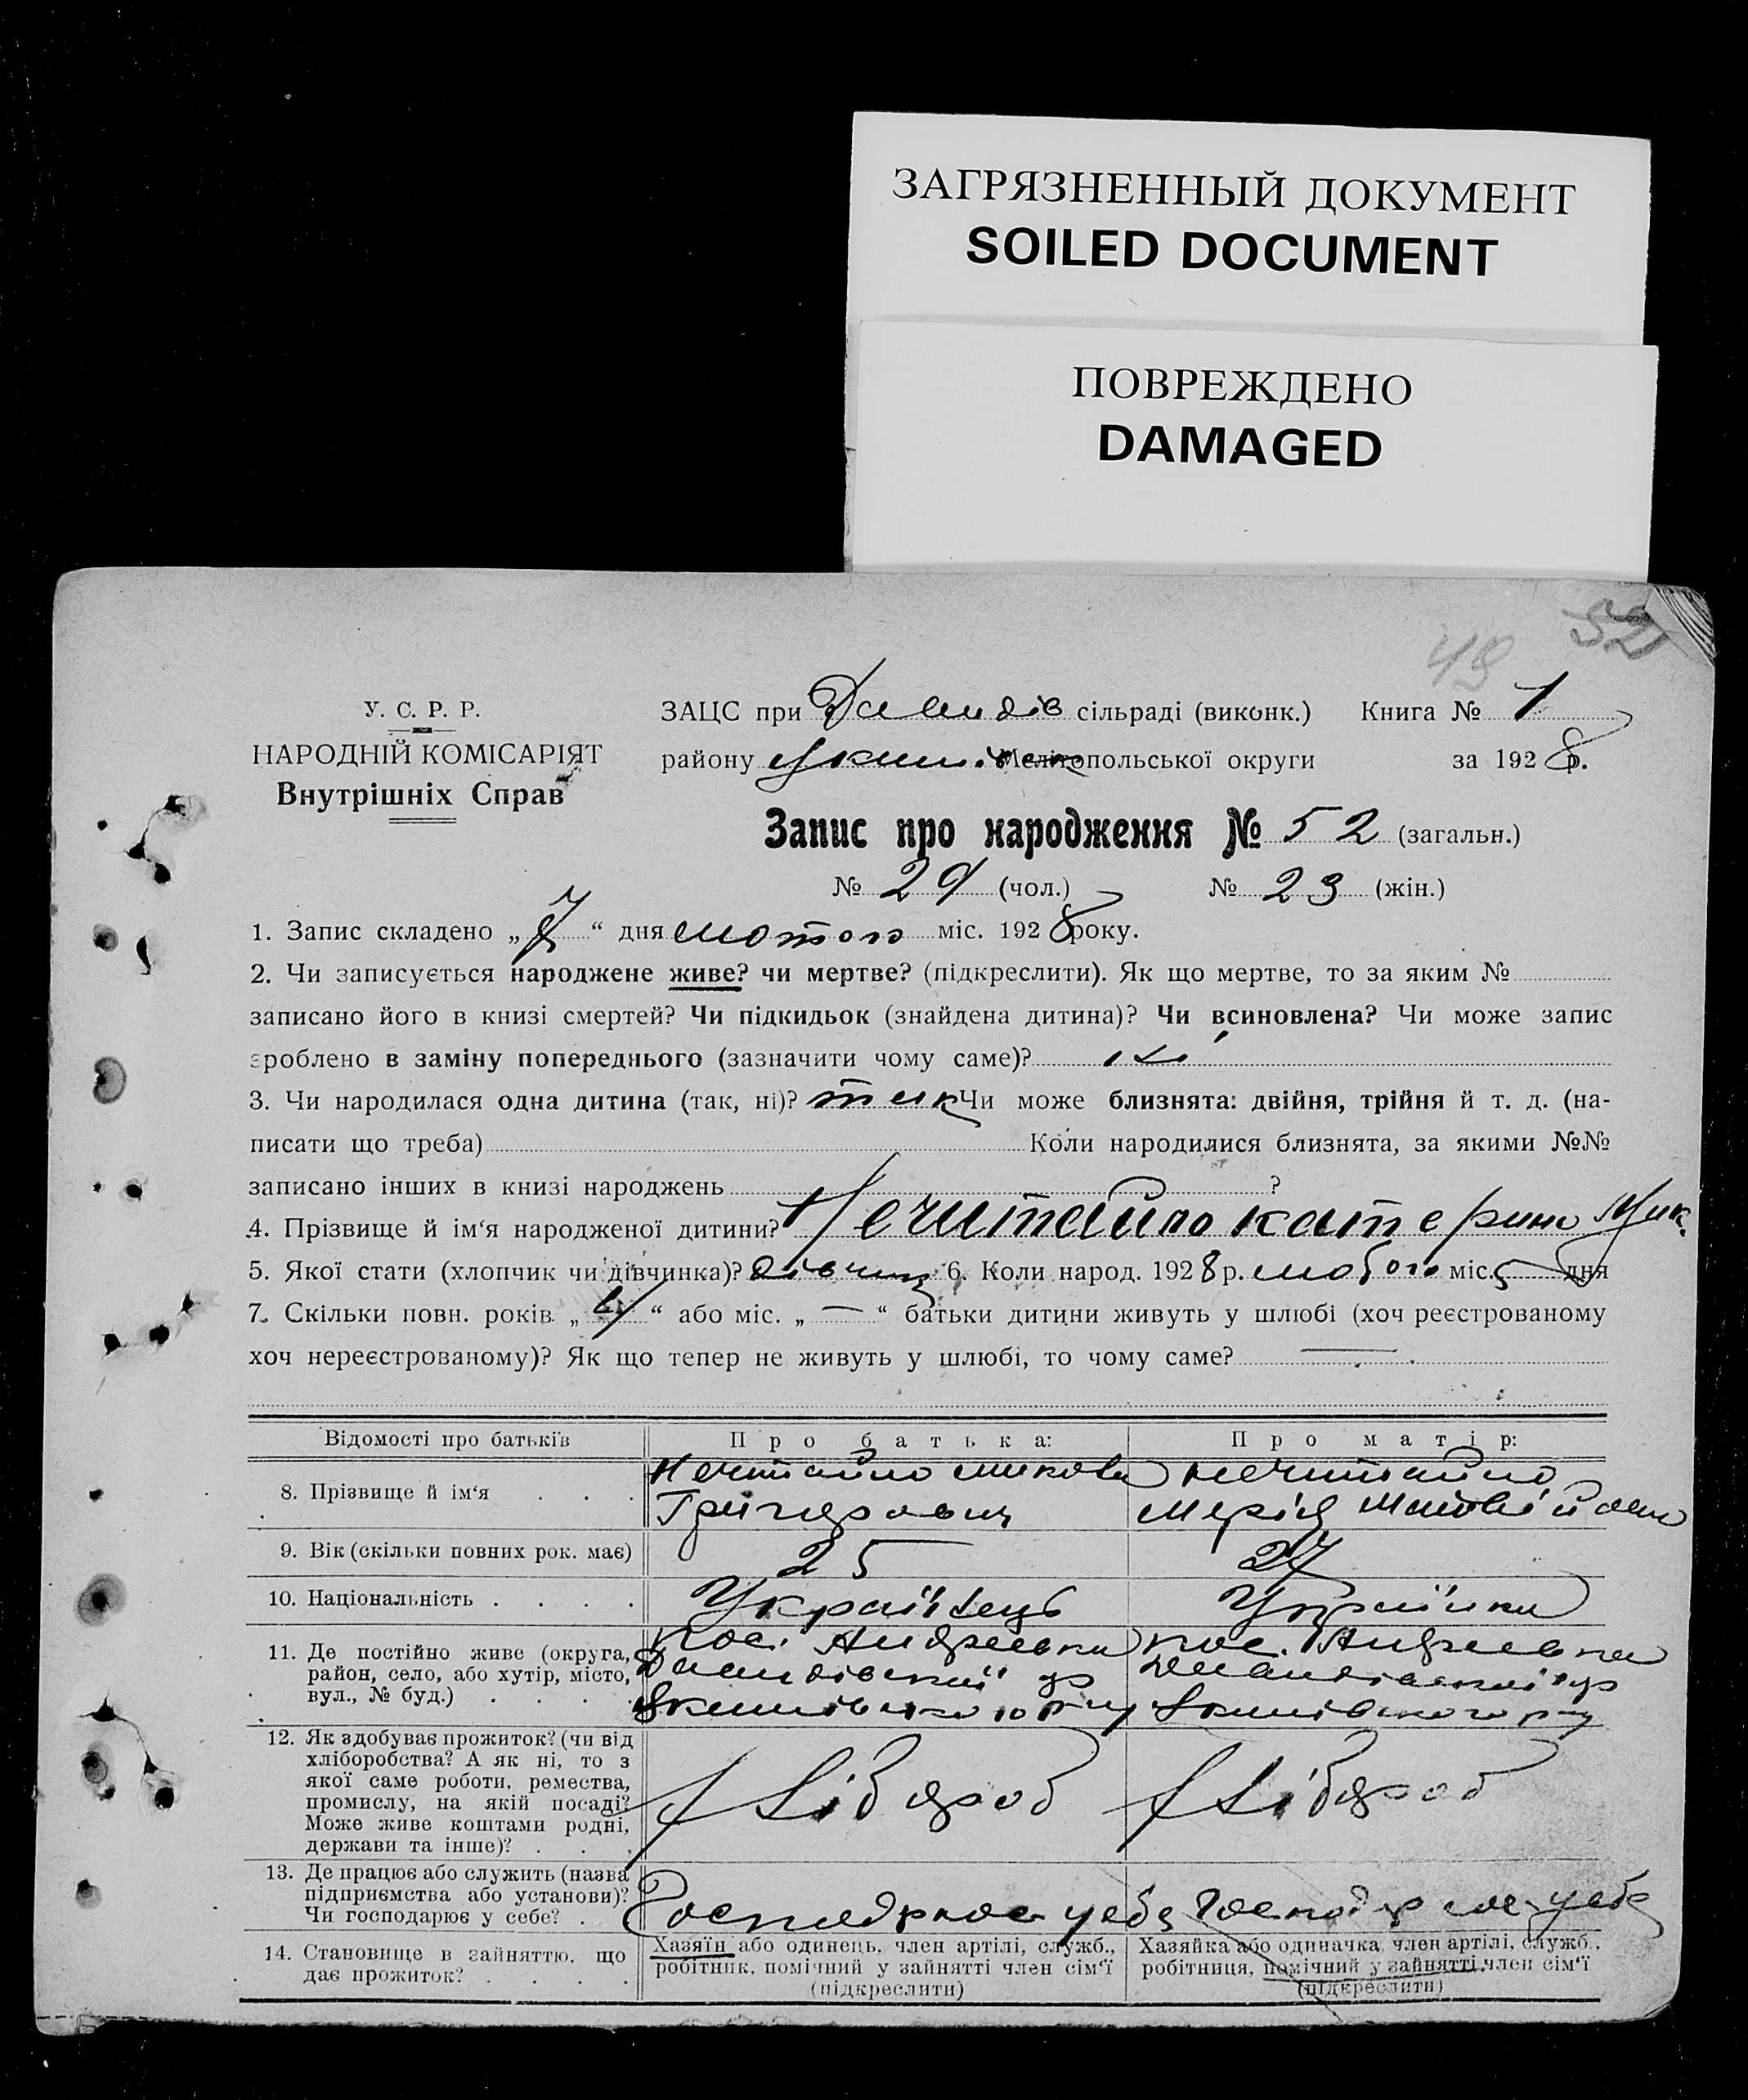 ЗАГРЯЗНЕННЫЙ ДОКУМЕНТ
SOILED DOCUMENT
ПОВРЕЖДЕНО
DAMAGED
49 52
У. С. Р. Р.
НАРОДНІЙ КОМІСАРІЯТ
Внутрішніх Справ
ЗАЦС при Давидів сільраді (виконк.) Книга № 1
району Якимівськ Мелітопольської округи за 1928 р.
Запис про народження № 52 (загальн.)
№ 29 (чол.) № 23 (жін.)
1. Запис складено „7“ дня лютого міс. 1928 року.
2. Чи записується народжене живе? чи мертве? (підкреслити). Як що мертве, то за яким №
записано його в книзі смертей? Чи підкидьок (знайдена дитина)? Чи всиновлена? Чи може запис
зроблено в заміну попереднього (зазначити чому саме)? ні
3. Чи народилася одна дитина (так, ні)? так Чи може близнята: двійня, трійня й т. д. (на-
писати що треба) Коли народилися близнята, за якими №№
записано інших в книзі народжень ?
4. Прізвище й ім‘я народженої дитини? Нечитайло Катерина Мик.
5. Якої стати (хлопчик чи дівчинка)? дівчинц 6. Коли народ. 1928 р. лютого міс. 5 дня
7. Скільки повн. років „4“ або міс. „—“ батьки дитини живуть у шлюбі (хоч реєстрованому
хоч нереєстрованому)? Як що тепер не живуть у шлюбі, то чому саме? —
Відомості про батьків Про батька: Про матір:
8. Прізвище й ім‘я . . . Нечитайло Микола Григорович Нечитайло Марія Матвіївна
9. Вік (скільки повних рок. має) 25 24
10. Національність . . . . Українець Українка
11. Де постійно живе (округа, пос. Андреевка пос. Андреевка
район, село, або хутір, місто, Давидівської с/р Давидівської с/р
вул., № буд.) . . . . Якимівського р-ну Якимівського р-ну
12. Як здобуває прожиток? (чи від
хліборобства? А як ні, то з
якої саме роботи, ремества,
промислу, на якій посаді? Хлібороб Хлібороб
Може живе коштами родні,
держави та інше)? . . .
13. Де працює або служить (назва
підприємства або установи)?
Чи господарює у себе? . Господарює у себе Господарює у себе
14. Становище в зайняттю, що Хазяїн або одинець, член артілі, служб., Хазяйка або одиначка, член артілі, служб.,
дає прожиток? . . . . робітник, помічний у зайнятті член сім‘ї робітниця, помічний у зайнятті член сім‘ї
(підкреслити) (підкреслити)